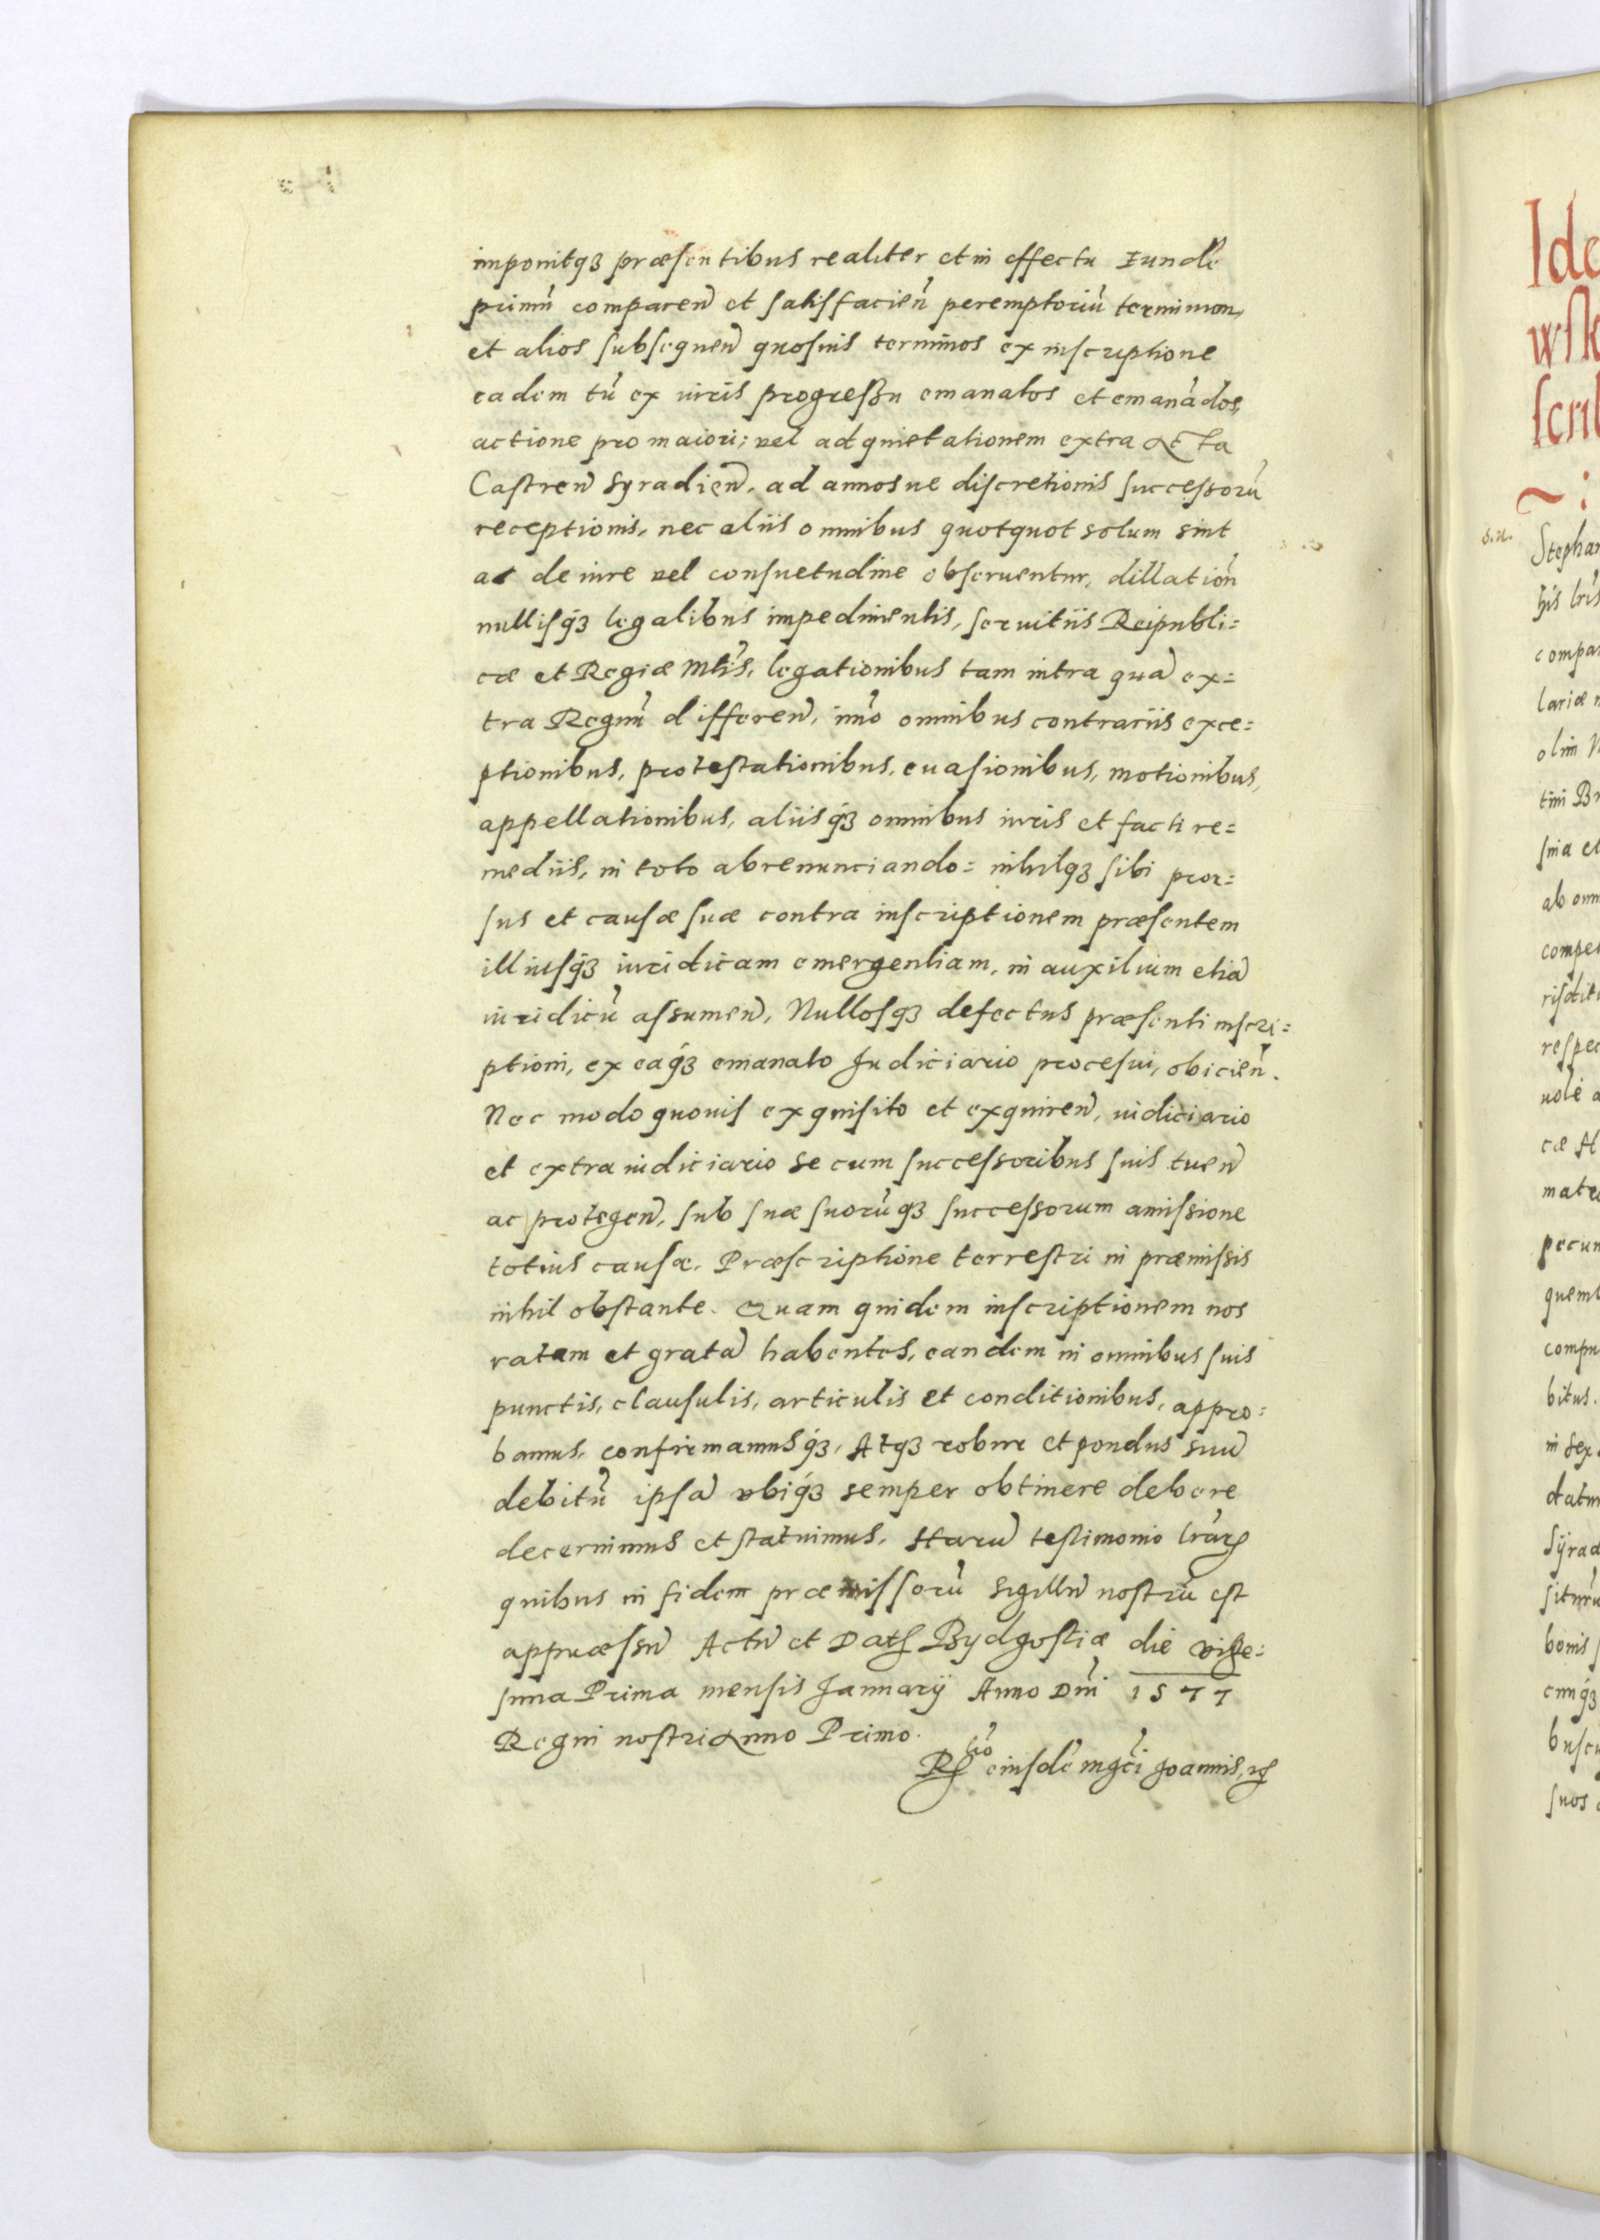 imponitqꝫ præsentibus realiter et in effectu Eundẽ
primũ comparen̄ et satisfacien̄ peremptoriũ terminum,
et alios subsequen̄ quosuis terminos ex inscriptione
eadem tũ ex iuris progressu emanatos et emanãdos,
actione pro maiori; vel ad quietationem extra Acta
Castren̄ Syradien̄, ad annosue discretionis successorũ
receptionis, nec aliis omnibus quotquot solum sint
ac de iure vel consuetudine obseruentur, dillation̄
nullisqꝫ legalibus impedimentis, seruitiis Reipubli=
cæ et Regiæ Mtis, legationibus tam intra quã ex=
tra Regnũ differen̄, imõ omnibus contrariis exce=
ptionibus, protestationibus, euasionibus, motionibus,
appellationibus, aliisqꝫ omnibus iuris et facti re=
mediis, in toto abrenunciando= nihilqꝫ sibi pror=
sus et causæ suæ contra inscriptionem præsentem
illiusqꝫ iuridicam emergentiam, in auxilium etiã
iuridicũ assumen̄, Nullosqꝫ defectus præsenti inscri=
ptioni, ex eaqꝫ emanato Judiciario procesui, obicien̄.
Nec modo quouis exquisito et exquiren̄, iudiciario
et extraiudiciario se cum successoribus suis tuen̄
ac protegen̄, sub suæ suorũqꝫ successorum amissione
totius causæ, Præscriptione terrestri in præmissis
nihil obstante. Quam quidem inscriptionem nos
ratam et gratã habentes, eandem in omnibus suis
punctis, clausulis, articulis et conditionibus, appro=
bamus, confirmamusqꝫ, Atqꝫ robur et pondus suũ
debitũ ipsã vbiqꝫ semper obtinere debere
decernimus et statuimus, Harũ testimonio lrarꝫ
quibus in fidem præmissorũ sigillũ nostrũ est
appræssũ Actũ et Datꝫ Bydgostiæ die vige=
sima Prima mensis Januarij Anno Dñi 1577
Regni nostri Anno Primo.
Rꝫtio eiusdẽ mgci Joannis, ꝛc
Ide
wsk
scri
Stephan
his lris
compar
lariæ
olim
tini Br
snia et
ab omn
compet
respec
cæ
mate
pecun
quem
compu
bitus.
in sex
datu
Syrad
situr
bonis
cunqꝫ
suos